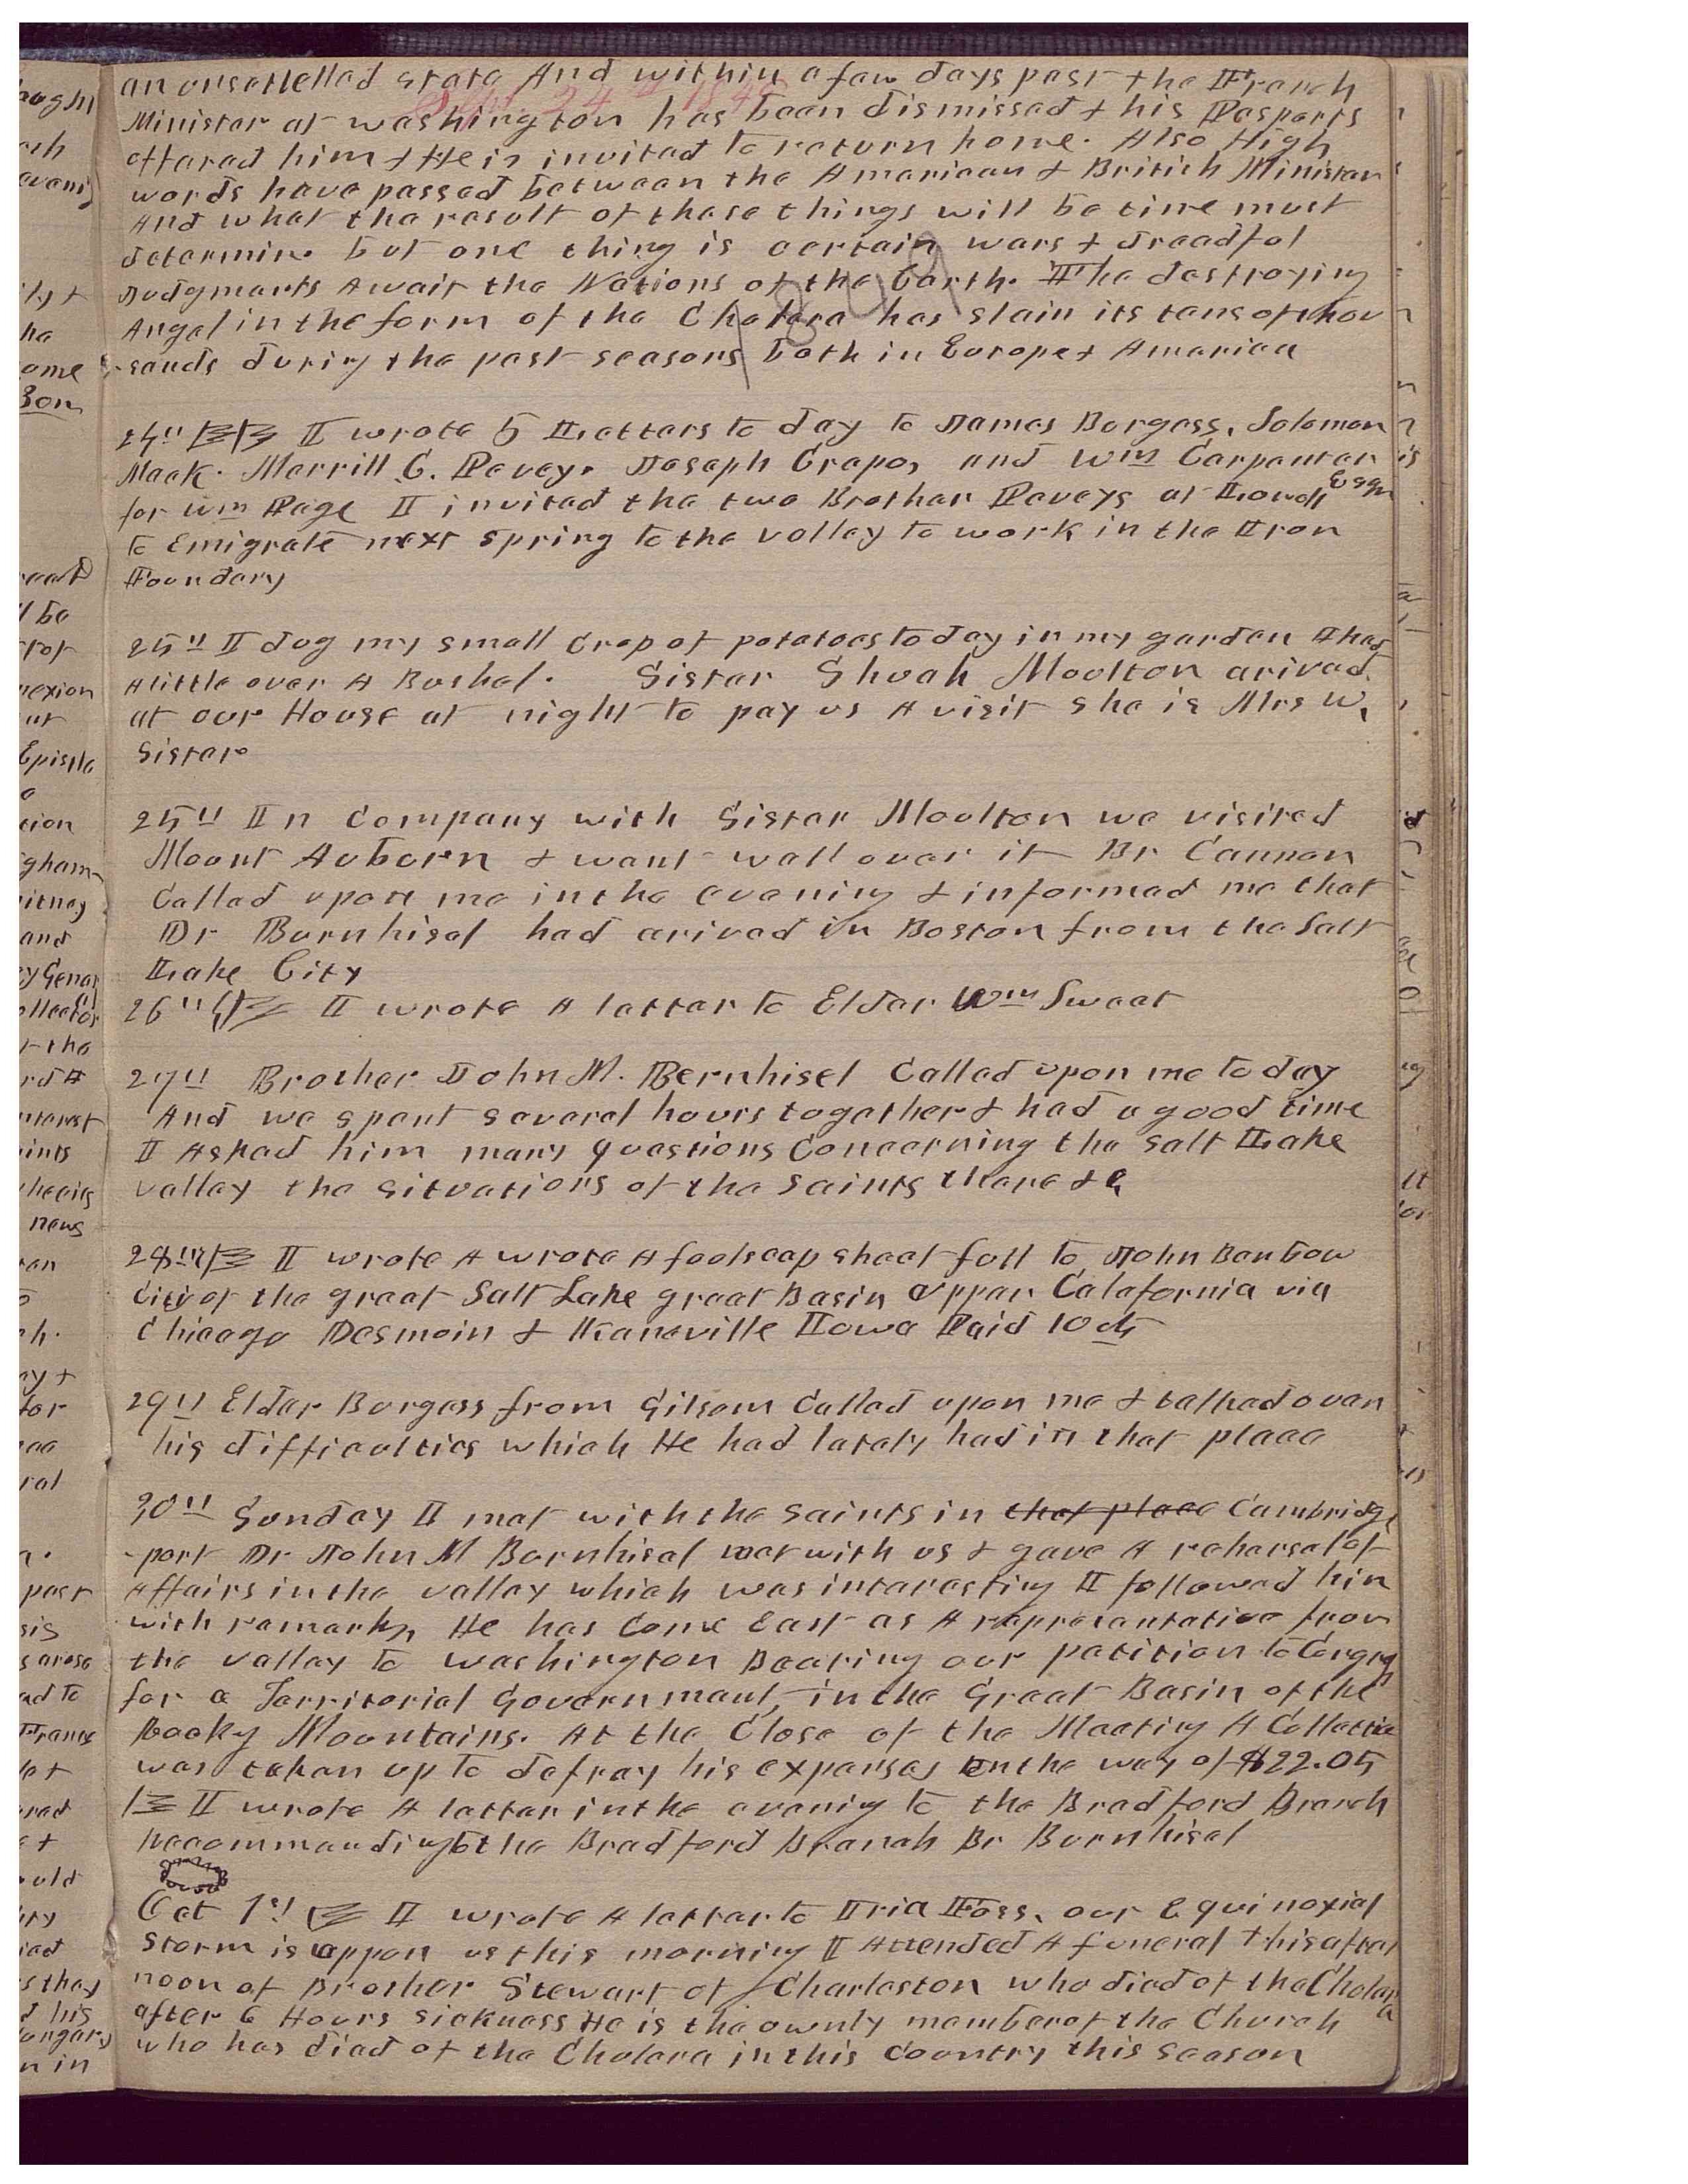 an unsettelled state And within a few days past the French
Sept. 24th 1849
Minister at washington has been dismissed & his Pasports
offared him & He is invited to return home. Also High
words have passed between the American & British Minister
And what the result of these things will be time must
determine but one thing is certain wars & dreadful
Judgments Await the Nations of the Earth. The destroying
1849
Angel in the form of the Cholera has slain its tens of thou
-sands during the past seasons both in Europe & America
24th I wrote 5 Letters to day to James Burgess, Solomon
Mack. Merrill C. Pevey. Joseph Crapo, and Wm Carpenter
Esqr
for Wm Page I invited the two Brother Peveys at Lowell
to Emigrate next spring to the valley to work in the Iron
Foundary
25th I dug my small Crop of potatoes to day in my garden I had
A little over A Bushel. Sister Shuah Moulton arived
at our House at night to pay us A visit she is Mrs W,
Sister
25th In Company with Sister Moulton we visited
Mount Auburn & went wall over it Br Cannon
Called upon me in the evening & informed me that
Dr Burnhisel had arived in Boston from the Salt
Lake City
26th I wrote A letter to Elder Wm Sweet
27th Brother John M. Bernhisel Called upon me to day
And we spent several hours together & had a good time
I Asked him many questions Concerning the Salt Lake
valley the situations of the Saints there &c
28th I wrote A wrote A foolscap sheet full to John Benbow
City of the great Salt Lake great Basin Upper Calafornia via
Chicago Desmoin & Kanesville Iowa Paid 10 cts
29th Elder Burgess from Gilsom Called upon me & talked over
his difficulties which He had lately had in that place
30th Sunday I met with the Saints in that place Cambridge
-port Dr John M Burnhisel met with us & gave A rehersal of
Affairs in the valley which was interesting I followed him
with remarks, He has Come East as A representative from
the valley to washington Bearing our petition to Congress
for a Territorial Government, in the Great Basin of the
Rocky Mountains. At the Close of the Meeting A Collection
was taken up to defray his expenses on the way of $22.05
I wrote A letter in the evening to the Bradford Branch
Recommanding to the Bradford Branch Br Burnhisel
Oct 1st I wrote A letter to Iria Foss, our Equinoxial
Storm is uppon us this morning I Attended A funeral this after
noon of Brother Stewart of Charleston who died of the Cholera
after 6 Hours sickness He is the ownly member of the Church
who has died of the Cholera in this Country this season